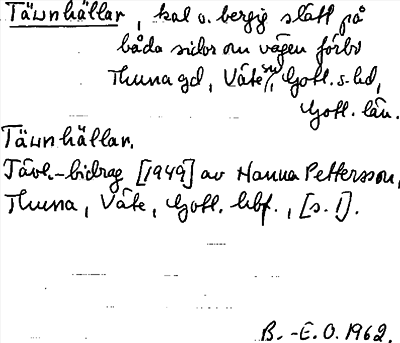 Täunhällar, kal o. bergig slätt på
båda sidor om vägen förbi
Thuna gd, Väte sn, Gotl. s. hd,
Gotl. län.
Täunhällar.
Tävl.-bidrag [1949] av Hanna Pettersson,
Thuna, Väte, Gotl. hbf., [s. 1].
B.-E.O. 1962.